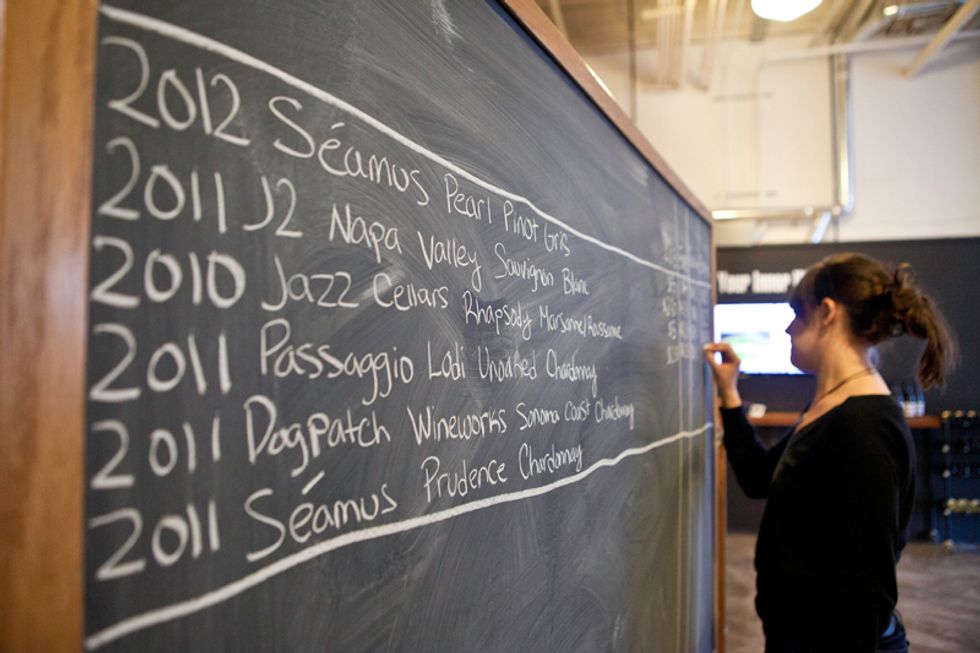 2012 Séamus Pearl Pinot Gris
2011 J2 Napa Valley Sauvignon Blanc
2010 Jazz Cellars Rhapsody Marsanne/Roussanne
2011 Passaggio Lodi Unoaked Chardonnay
2011 Dogpatch Wineworks Sonoma Coast Chardonnay
2011 Séamus Prudence Chardonnay
Your Inner